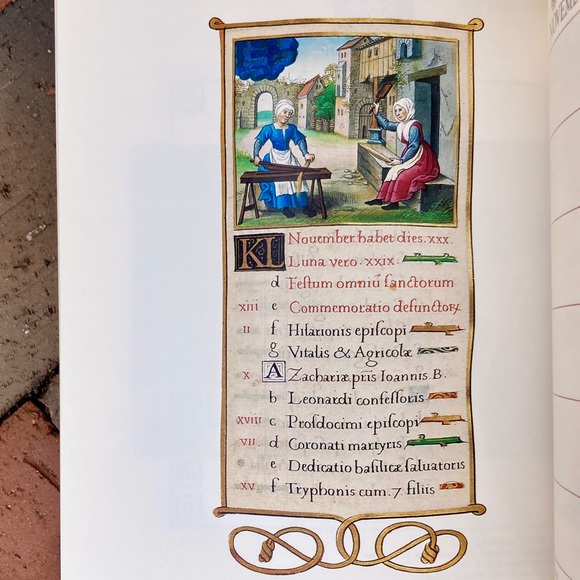 NOVEM
KL November habet dies. xxx.
Luna vero. xxix.
d Festum omniū sanctorum
xiii e Commemoratio defunctoꝝ
ii f Hilarionis episcopi
g Vitalis & Agricolæ
x A Zachariæ pr̄is Ioannis B.
b Leonardi confessoris
xviii c Prosdocimi episcopi
vii. d Coronati martyris
e Dedicatio basilicæ saluatoris
xv f Tryphonis cum. 7 filiis